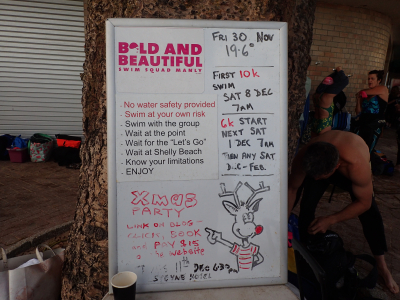 BOLD AND
BEAUTIFUL
SWIM SQUAD MANLY
- No water safety provided
- Swim at your own risk
- Swim with the group
- Wait at the point
- Wait for the "Let's Go"
- Wait at Shelly Beach
- Know your limitations
- ENJOY
FRI 30 NOV
19.6°
FIRST 10k
SWIM
SAT 8 DEC
7AM
6k START
NEXT SAT
1 DEC 7AM
THEN ANY SAT
DEC-FEB.
XMAS
PARTY
LINK ON BLOG -
CLICK, BOOK
AND PAY $15
website
11th DEC 6.30pm
HOTEL